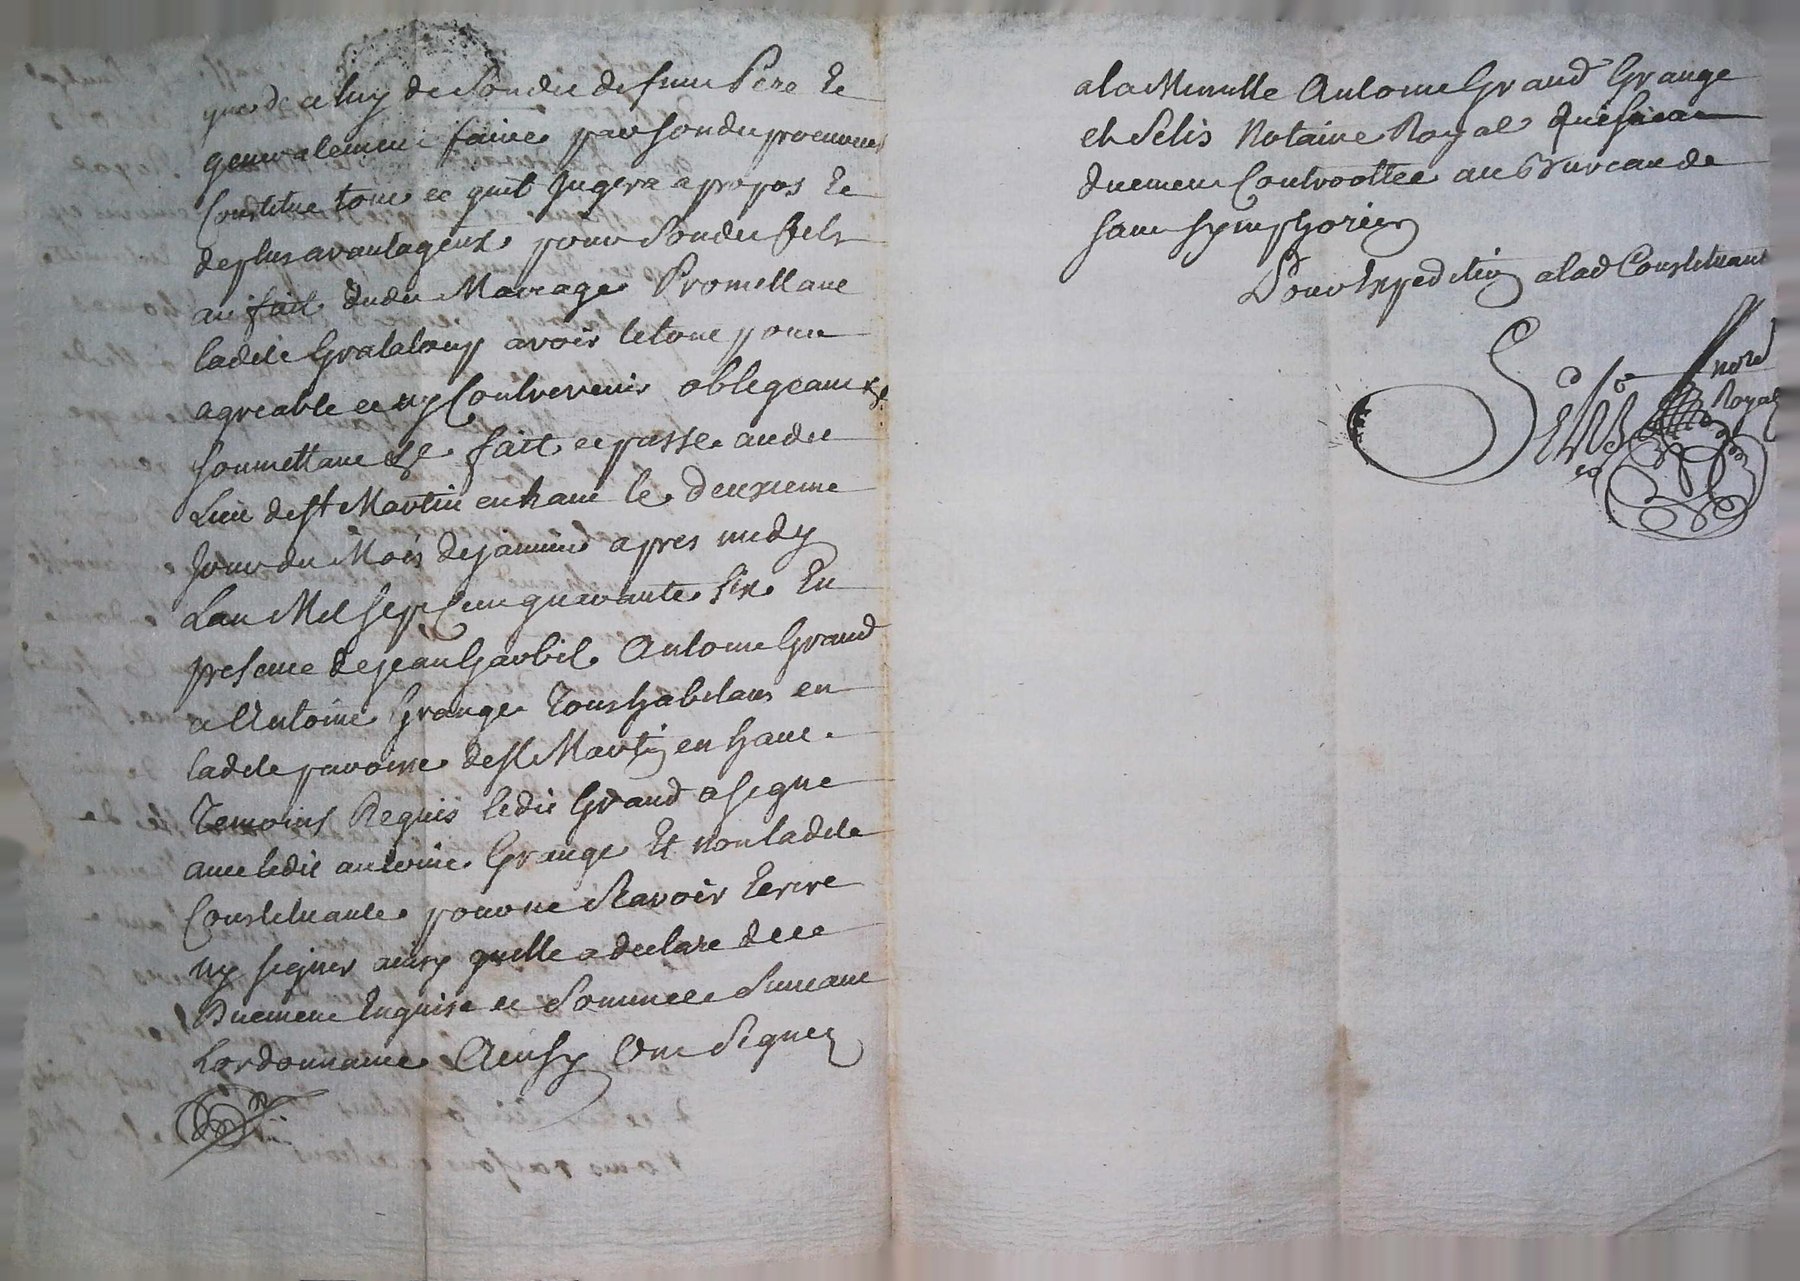 que de celuy de Sondit defunt Pere Et
generalement faire par sondit procureur
Constitue tout ce quil Jugera apropos Et
de plus avantageux pour Sondit fils
au fait dudit Mariage Promettant
ladite Grataloup avoir letout pour
agreable et ny Contrevenir obligeant &c
soumettant &c fait et passé audit
Lieu de St Martin en haut le deuxieme
Jour du Mois de janvier apres midy
Lan Mil sept Cent quarante six En
presence de jean Antoine Grand
et Antoine Grange Tous habitans en
ladite paroisse de St Martin en haut
Temoins Requis ledit Grand a signe
avec ledit antoine Grange Et non ladite
Constituante pour ne Scavoir Ecrire
ny signer ainsy quelle a declare de ce
Duement Enquise et Sommee Suivant
Lordonnance Ainsy Ont Signez
a la Minutte Antoine Grand Grange
et Selis Notaire Royal
duement Controollee au Bureau de
saint symphorien
Pour Expedition a lad Constituante
Selis nore
Royal